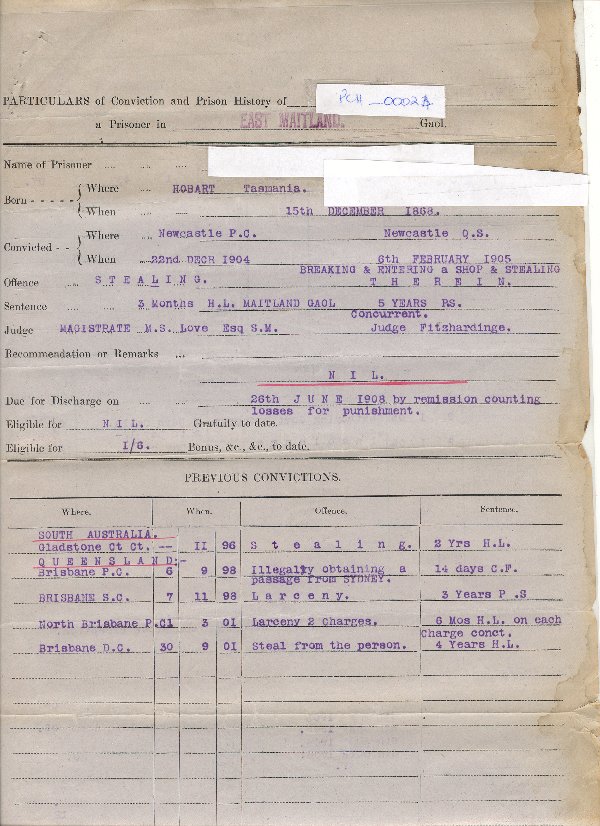 PCH_0002A
PARTICULARS of Conviction and Prison History of
a Prisoner in EAST MAITLAND. Gaol.
Name of Prisoner .... .... ....
Born - - - - - { Where .... HOBART Tasmania.
When .... 15th DECEMBER 1868.
Convicted - - { Where .... Newcastle P.C. Newcastle Q.S.
When .... 22nd DECR 1904 6th FEBRUARY 1905
BREAKING & ENTERING a SHOP & STEALING
Offence .... S T E A L I N G. T H E R E I N.
Sentence .... 3 Months H.L. MAITLAND GAOL 5 YEARS RS.
Concurrent.
Judge MAGISTRATE M.S. Love Esq S.M. Judge Fitzhardinge.
Recommendation or Remarks ...
N I L.
Due for Discharge on .... 26th J U N E 1908 by remission counting
losses for punishment.
Eligible for N I L. Gratuity to date.
Eligible for 1/6. Bonus, &c., &c., to date.
PREVIOUS CONVICTIONS.
Where. When. Offence. Sentence.
SOUTH AUSTRALIA.
Gladstone Ct Ct. -- II 96 S t e a l i n g. 2 Yrs H.L.
Q U E E N S L A N D:-
Brisbane P.C. 6 9 98 Illegally obtaining a 14 days C.F.
passage from SYDNEY.
BRISBANE S.C. 7 11 98 L a r c e n y. 3 Years P .S
North Brisbane P.C1 3 01 Larceny 2 Charges. 6 Mos H.L. on each
Charge conct.
Brisbane D.C. 30 9 01 Steal from the person. 4 Years H.L.